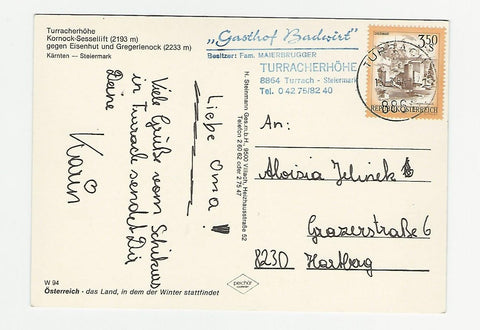 Turracherhöhe
Kornock-Sessellift (2193 m)
gegen Eisenhut und Gregerlenock (2233 m)
Kärnten — Steiermark
"Gasthof Badwirt"
Besitzer: Fam. MAIERBRUGGER
TURRACHERHÖHE
8864 Turrach - Steiermark
Tel. 0 42 75/82 40
3,50
REPUBLIK ÖSTERREICH
TURRACH
886
Liebe Oma!
Viele Grüße vom Schikurs
in Turrach sendet Dir
Deine
Karin
H. Steinmann Ges.m.b.H., 9500 Villach, Heizhausstraße 52
Telefon 2 60 62 oder 2 75 47
An:
Aloisia Jelinek
Grazerstraße 6
8230 Hartbag
W 94
Österreich - das Land, in dem der Winter stattfindet